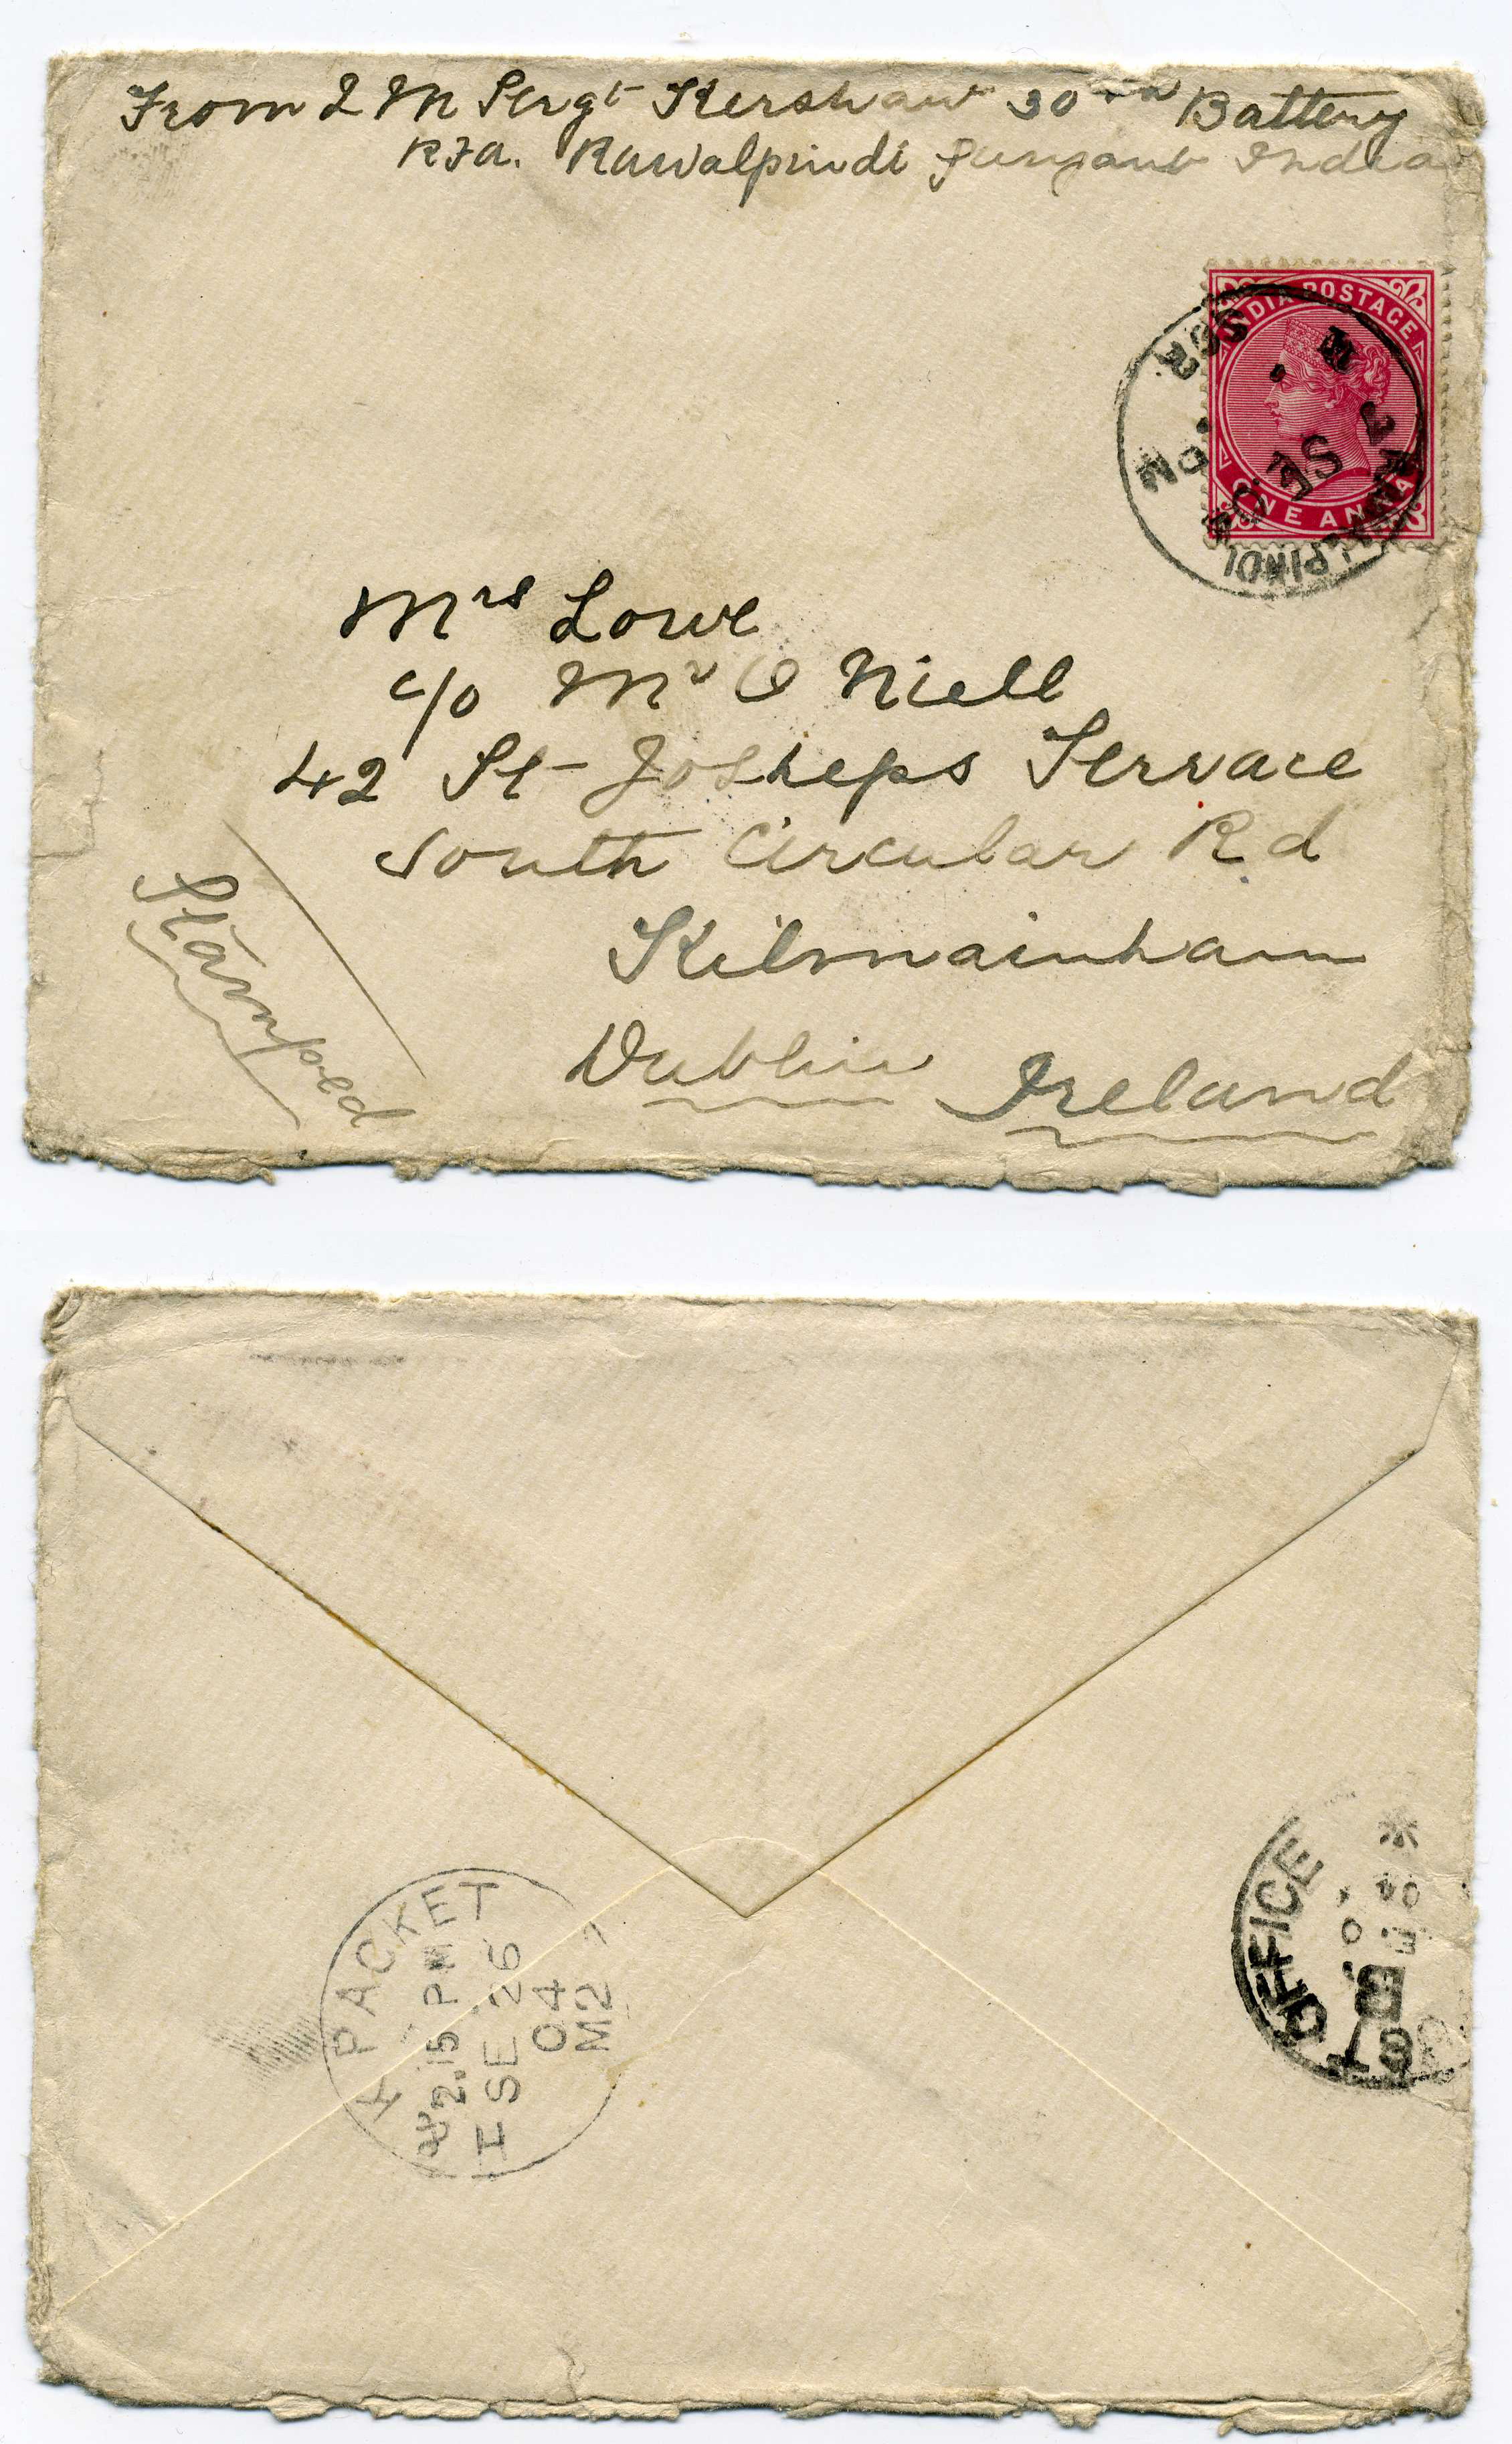 From Q M Sergt Kershaw 30th Battery
R.F.A. Rawalpindi Punjaub India
INDIA POSTAGE
ONE ANNA
RAWALPINDI
7 SE 04
Mrs Lowe
c/o Mr O Niell
42 St Josheps Terrace
South Circular Rd
Kilmainham
Dublin Ireland
Stamped
K PACKET
2.15 PM
SE 26
04
M2
OFFICE